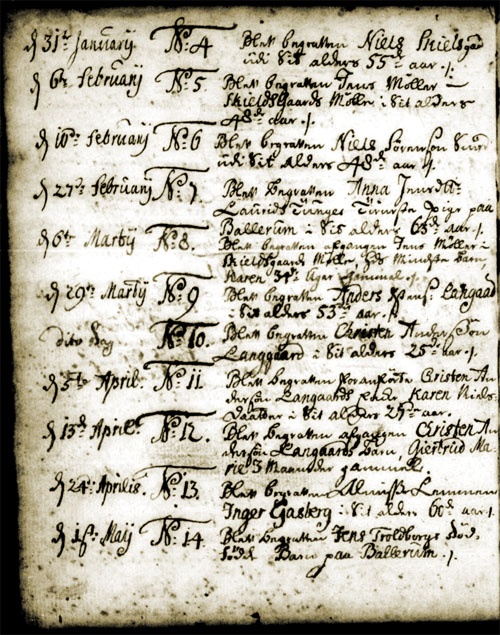 d 31te Januarij No: 4 Blev begravten Niels Skiels
udi Sit alders 55te aar
d 6te Februarij No: 5 Blev begravten Jens Møller i
Skieldsgaards Mølle i Sit alders
48de aar
d 16de Februarij No: 6 Blev begravten Niels Sørensøn
udi Sit Alders 48de aar
d 27de Februarij No: 7 Blev begravten Anna
Laurids Pige paa
Ballerum i Sit alders 63de aar
d 6te Martij No: 8. Blev begravten afgangen Jens Møller i
Skieldsgaards Mølle hds Mindste barn
Karen 34 Uger gammel
d 29de Martij No: 9 Blev begravten Anders Langaad
i Sit alders 53de aar
dito dag No: 10. Blev begravten Christen Andersøn
Langgaard i Sit alders 25de aar
d 5te April: No: 11. Blev begravten Cristen An
dersøn Langaards Enke Karen Niels
Daatter i Sit alders 29de aar.
d 13de April: No: 12. Blev begravten afgangen Christen An
dersøn Langaards barn, Giertrud Ma
rie 3 Maaneder gammel.
d 24de Aprilis No: 13. Blev begravten Almisse Lemmen
Inger i Sit alders 60de aar
d 1ste Maij No: 14. Blev begravten Jens Troldborgs død
født Barn paa Ballerum